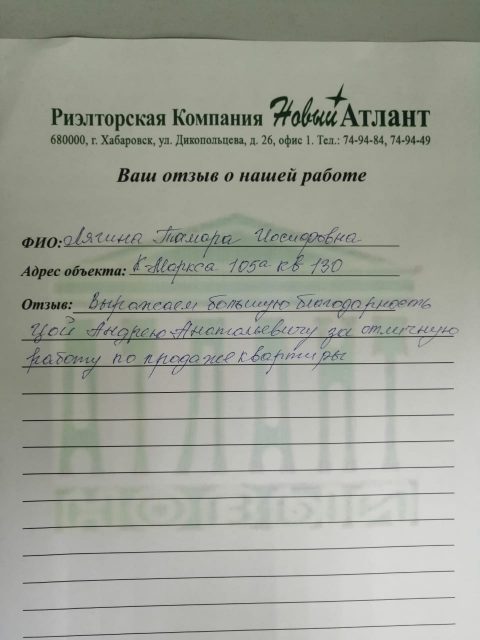 Риэлторская Компания Новый Атлант
680000, г. Хабаровск, ул. Дикопольцева, д. 26, офис 1. Тел.: 74-94-84, 74-94-49
Ваш отзыв о нашей работе
ФИО: Лягина Тамара Иосифовна
Адрес объекта: К-Маркса 105а кв 130
Отзыв: Выражаем большую благодарность
Цой Андрею Анатольевичу за отличную
работу по продаже квартиры